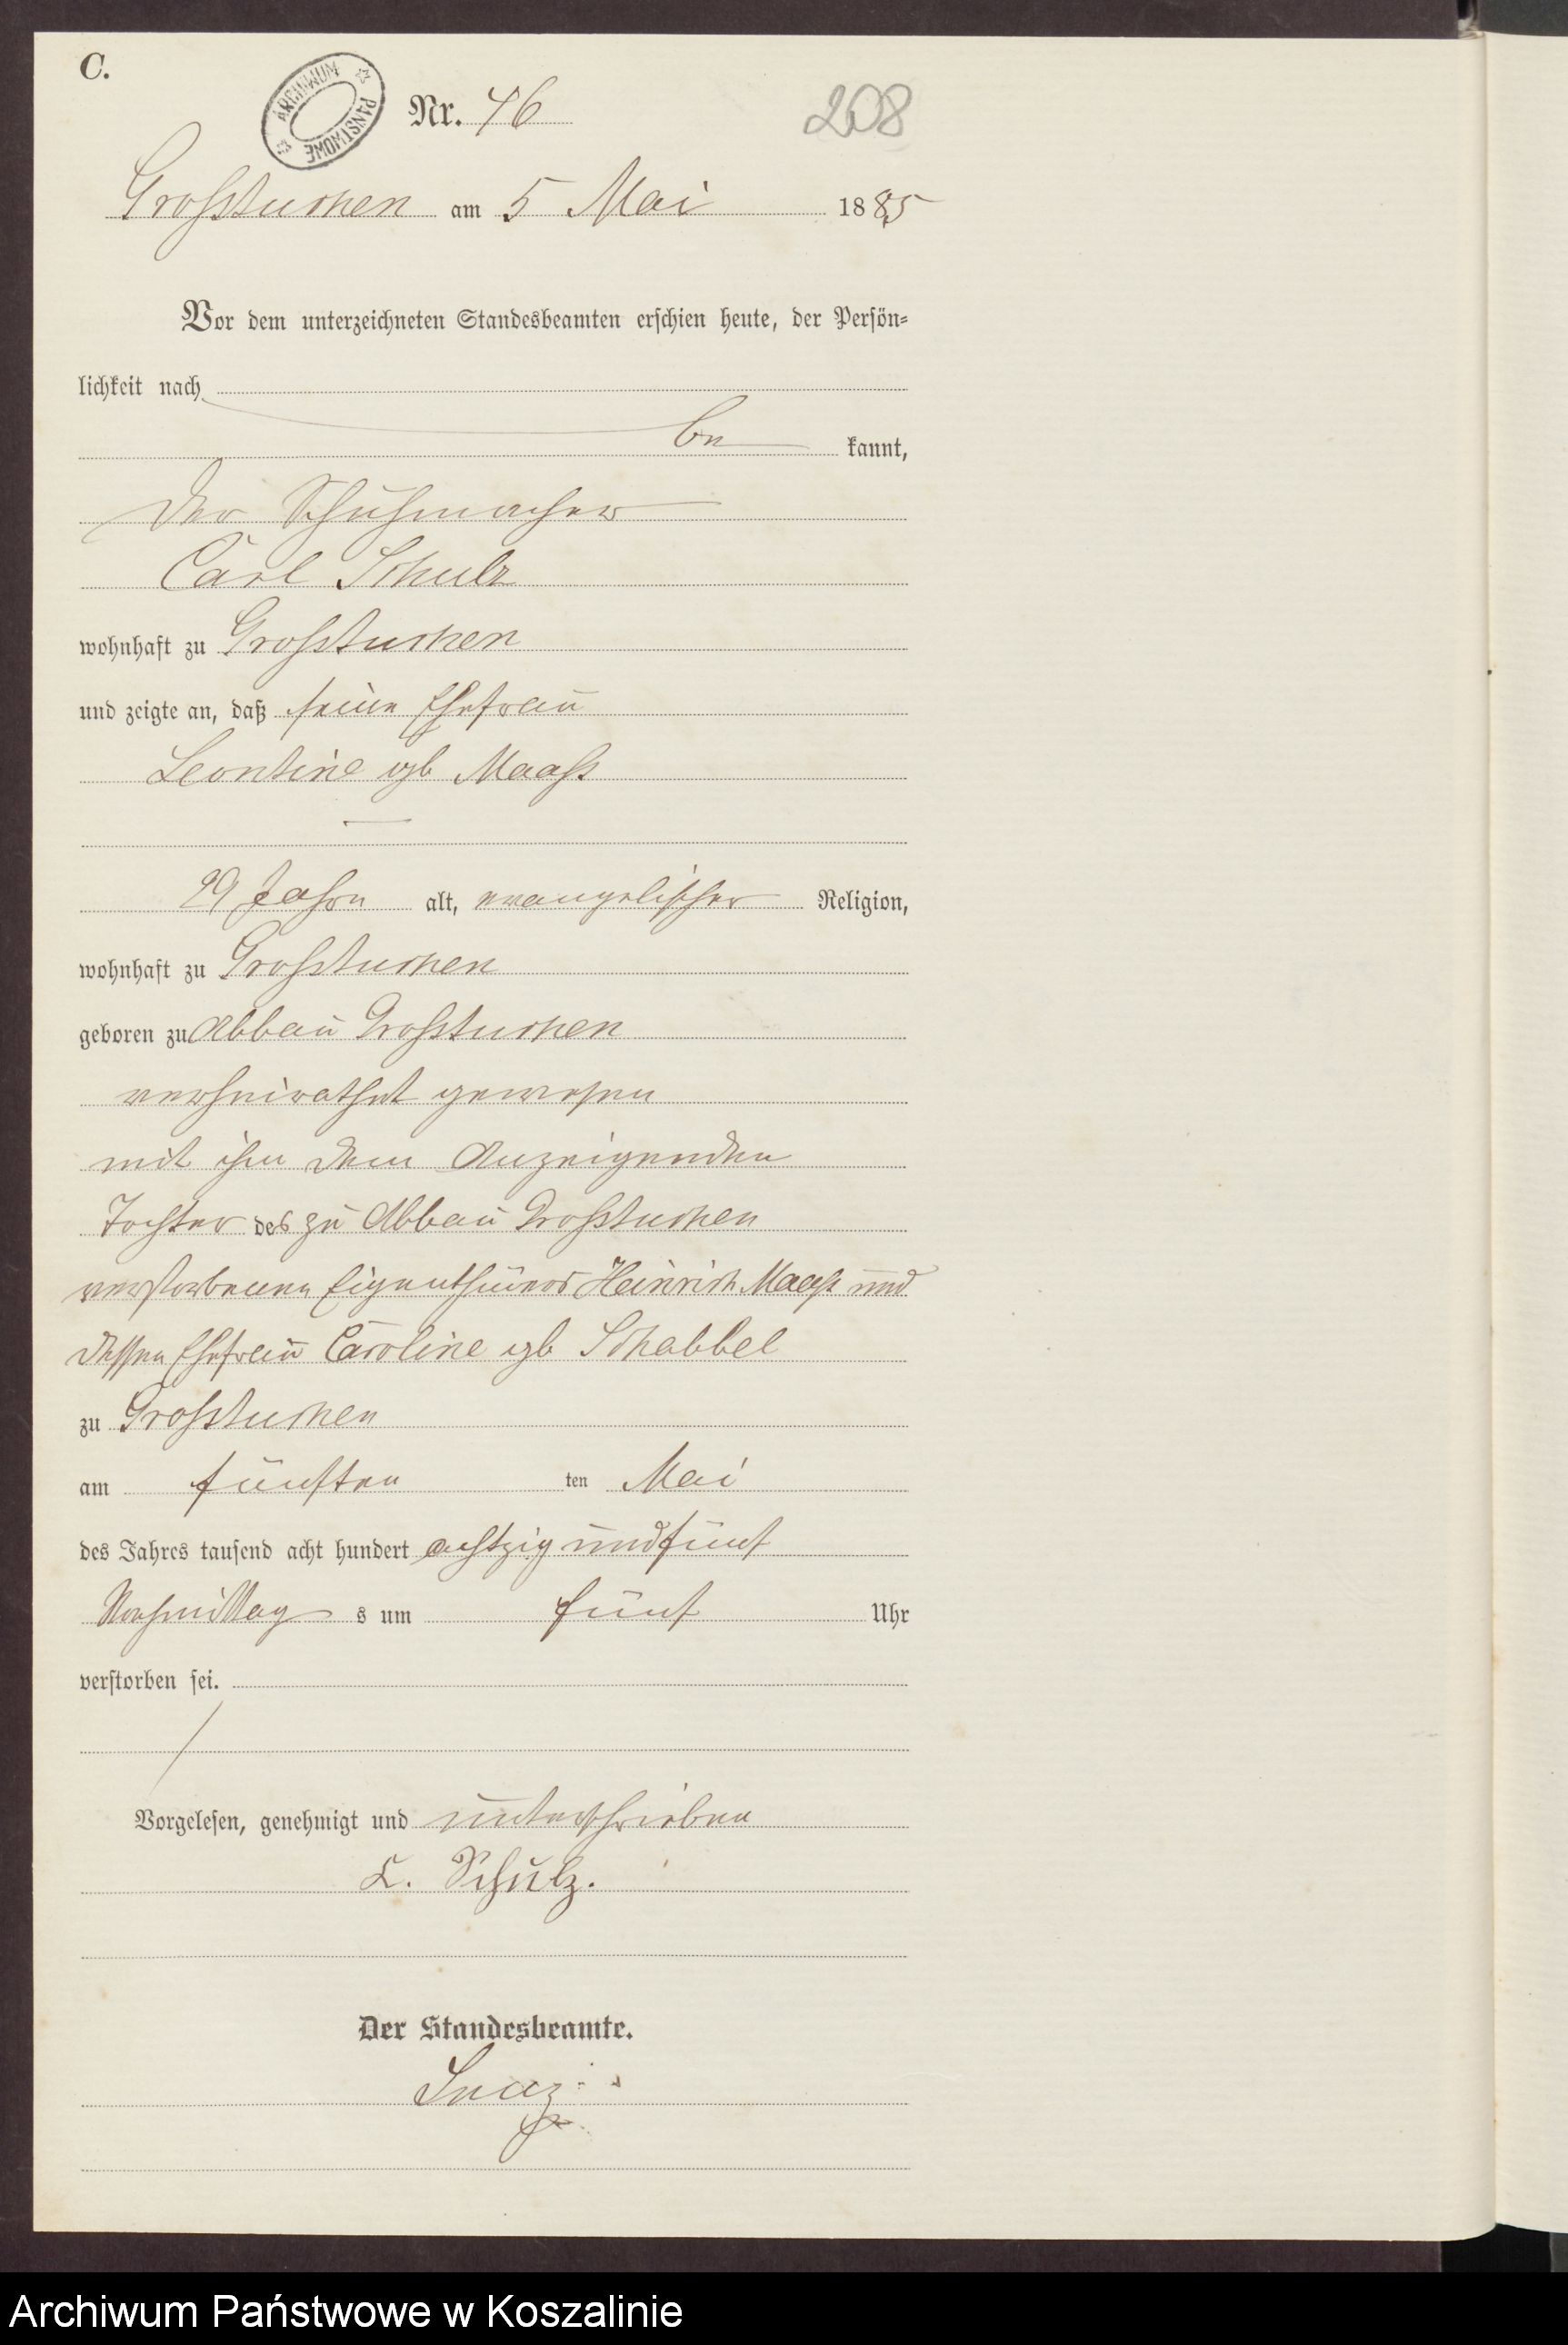 C.
ARCHIWUM PAŃSTWOWE
Nr. 46
208
Grosstuchen am 5 Mai 1885
Vor dem unterzeichneten Standesbeamten erschien heute, der Persön=
lichkeit nach
be kannt,
der Schuhmacher
Carl Schulz
wohnhaft zu Grosstuchen
und zeigte an, daß seine Ehefrau
Leontine gb Maaß
29 Jahre alt, evangelischer Religion,
wohnhaft zu Grosstuchen
geboren zu Abbau Grosstuchen
verheirathet gewesen
mit ihm dem Anzeigenden
Tochter des zu Abbau Grosstuchen
verstorbenen Eigenthümers Heinrich Maaß und
dessen Ehefrau Caroline gb Schabbel
zu Grosstuchen
am fünften ten Mai
des Jahres tausend acht hundert achtzig und fünf
Nachmittag s um fünf Uhr
verstorben sei.
Vorgelesen, genehmigt und unterschrieben
C. Schulz.
Der Standesbeamte.
Archiwum Państwowe w Koszalinie